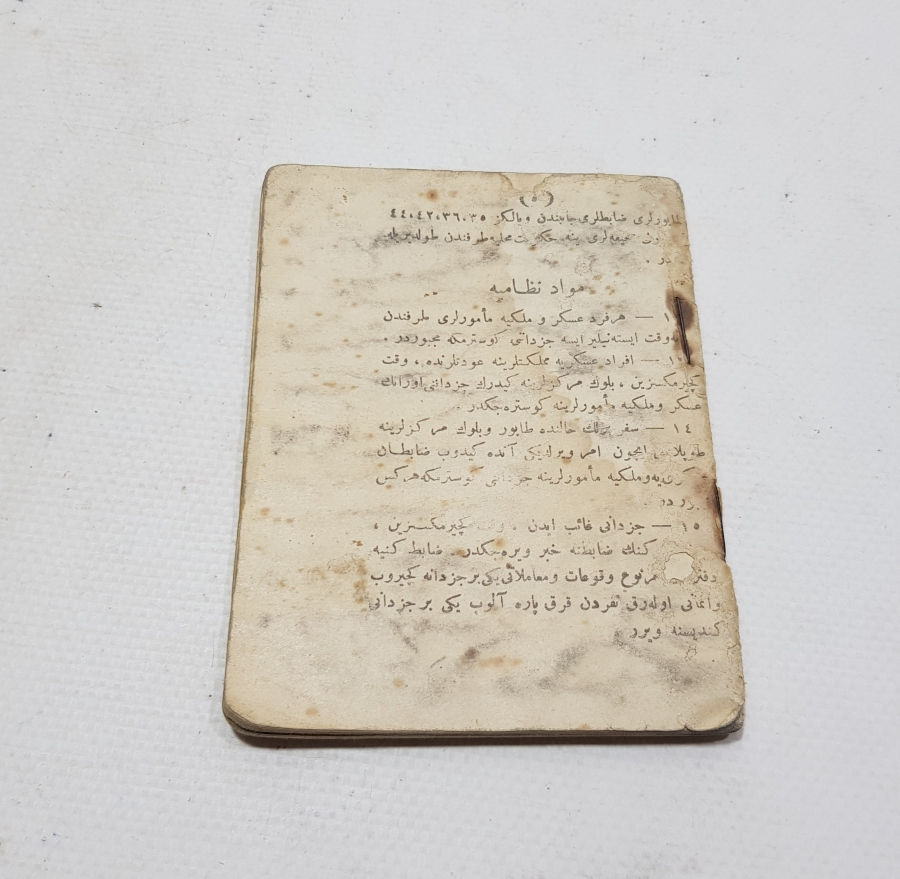 (٥)
طابورلری ضابطلری جانبندن ویالکز ٤٤،٤٢،٣٦،٣٥
صحیفه‌لری ینه حکومت محلیه طرفندن طولدیریله
در .
مواد نظامیه
— هر فرد عسکر و ملکیه مأمورلری طرفندن
وقت ایسته‌نیلیر ایسه جزدانی کوسترمکه مجبوردر .
— افراد عسکریه مملکتلرینه عودتلرنده ، وقت
کچیرمکسزین ، بلوك مرکزلرینه کیدرك جزدانی اورانك
عسکر وملکیه مأمورلرینه کوستره‌جکدر .
١٤ — سفر برلك حالنده طابور وبلوك مرکزلرینه
طوپلانمق ایچون امر ویرلدیکی آنده کیدوب ضابطان
وملکیه مأمورلرینه جزدانی کوسترمکه هرکس
١٥ — جزدانی غائب ایدن ، وقت کچیرمکسزین ،
کنك ضابطنه خبر ویره‌جکدر . ضابط کنیه
هر نوع وقوعات ومعاملاتی یکی بر جزدانه کچیروب
واثمانی اوله‌رق نفردن قرق پاره آلوب یکی بر جزدانی
کندیسنه ویرر .